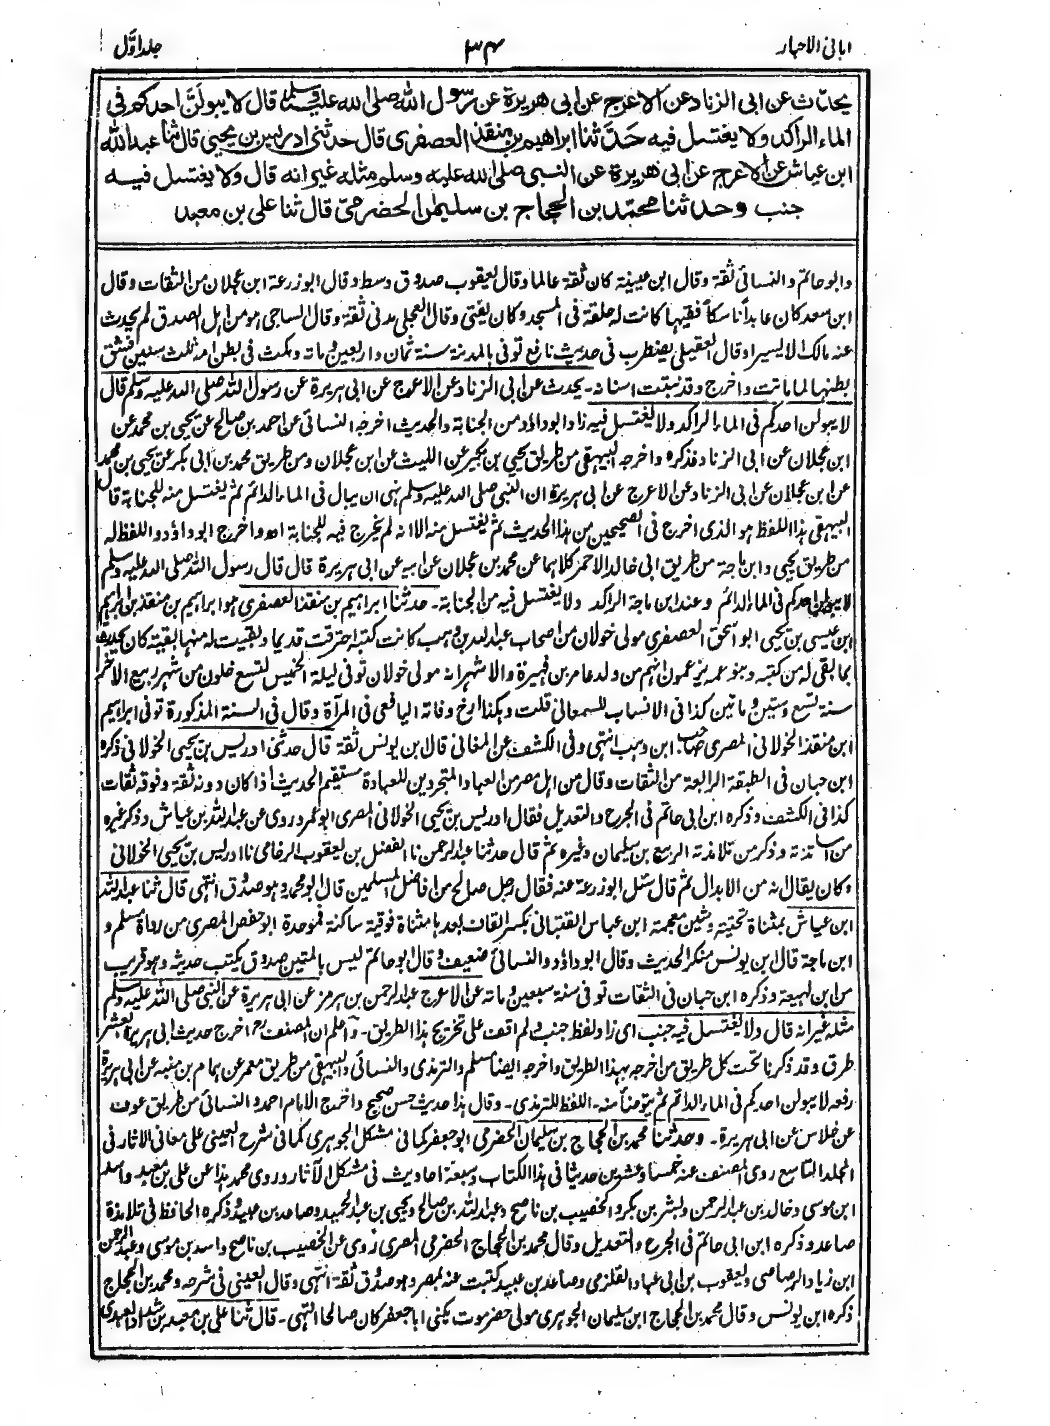 امانی الاحبار ۳۴ جلد اوّل
یحدّث عن ابی الزناد عن الاعرج عن ابی هریرة عن رسول الله صلی الله علیه وسلم قال لا یبولنّ احدکم فی
الماء الراکد ولا یغتسل فیه حدّثنا ابراهیم بن منقذ العصفری قال حدثنی ادریس بن یحیی قال ثنا عبدالله
ابن عیاش عن الاعرج عن ابی هریرة عن النبی صلی الله علیه وسلم مثله غیر انه قال ولا یغتسل فیه
جنب وحدثنا محمّد بن الحجاج بن سلیمٰن الحضرمیّ قال ثنا علی بن معبد
وابو حاتم والنسائی ثقة وقال ابن عیینة کان ثقة عالما وقال یعقوب صدوق وسط وقال ابو زرعة ابن عجلان من الثقات وقال
ابن سعد کان عابداً ناسکاً فقیها کانت له حلقة فی المسجد وکان یفتی وقال العجلی مدنی ثقة وقال الساجی هو من اهل الصدق لم یحدث
عنه مالک الا یسیرا وقال العقیلی یضطرب فی حدیث نافع توفی بالمدینة سنة ثمان واربعین ومائة ومکث فی بطن امه ثلث سنین فشق
بطنها لما ماتت واخرج وقد نبتت اسنانه۔ یحدث عن ابی الزناد عن الاعرج عن ابی هریرة عن رسول الله صلی الله علیه وسلم قال
لا یبولن احدکم فی الماء الراکد ولا یغتسل فیه زاد ابوداؤد من الجنابة والحدیث اخرجه النسائی عن احمد بن صالح عن یحیی بن محمد عن
ابن عجلان عن ابی الزناد فذکره واخرجه البیهقی من طریق یحیی بن بکیر عن اللیث عن ابن عجلان ومن طریق محمد بن ابی بکر عن یحیی بن محمد
عن ابن عجلان عن ابی الزناد عن الاعرج عن ابی هریرة ان النبی صلی الله علیه وسلم نهی ان یبال فی الماء الدائم ثم یغتسل منه للجنابة قال
البیهقی هذا اللفظ هو الذی اخرج فی الصحیحین من هذا الحدیث ثم یغتسل منه الا انه لم یخرج فیه للجنابة اه واخرج ابوداؤد واللفظ له
من طریق یحیی وابن ماجة من طریق ابی خالد الاحمر کلاهما عن محمد بن عجلان عن ابیه عن ابی هریرة قال قال رسول الله صلی الله علیه وسلم
لا یبولن احدکم فی الماء الدائم وعند ابن ماجة الراکد ولا یغتسل فیه من الجنابة۔ حدثنا ابراهیم بن منقذ العصفری هو ابراهیم بن منقذ بن ابراهیم
ابن عیسی بن یحیی ابو اسحق العصفری مولی خولان من اصحاب عبدالله بن وهب کانت کتبه احترقت قدیما وبقیت له منها بقیة کان یحدث
بما بقی له من کتبه وبنو عمه یزعمون انهم من ولد عامر بن فهیرة والاشهر انه مولی خولان توفی لیلة الخمیس لتسع خلون من شهر ربیع الآخر
سنة تسع وستین ومائتین کذا فی الانساب للسمعانی قلت وهکذا ارخ وفاته الیافعی فی المرآة وقال فی السنة المذکورة توفی ابراهیم
ابن منقذ الخولانی المصری صاحب ابن وهب انتهی وفی الکشف عن المغانی قال ابن یونس ثقة قال حدثنی ادریس بن یحیی الخولانی ذکره
ابن حبان فی الطبقة الرابعة من الثقات وقال من اهل مصر من العباد المتجردین للعبادة مستقیم الحدیث اذا کان دونه ثقة وفوقه ثقات
کذا فی الکشف وذکره ابن ابی حاتم فی الجرح والتعدیل فقال ادریس بن یحیی الخولانی المصری ابو عمرو روی عن عبدالله بن عیاش وذکر غیره
من اساتذته وذکر من تلامذته الربیع بن سلیمان وغیره ثم قال حدثنا عبدالرحمن نا الفضل بن یعقوب الرخامی نا ادریس بن یحیی الخولانی
وکان یقال انه من الابدال ثم قال سئل ابو زرعة عنه فقال رجل صالح من افاضل المسلمین قال ابو محمد وهو صدوق انتهی قال ثنا عبدالله
ابن عیاش بمثناة تحتیة وشین معجمة ابن عباس القتبانی بکسر القاف بعدها مثناة فوقیة ساکنة فموحدة ابو حفص المصری من رواة مسلم و
ابن ماجة قال ابن یونس منکر الحدیث وقال ابوداؤد والنسائی ضعیف وقال ابو حاتم لیس بالمتین صدوق یکتب حدیثه وهو قریب
من ابن لهیعة وذکره ابن حبان فی الثقات توفی سنة سبعین ومائة عن الاعرج عبدالرحمن بن هرمز عن ابی هریرة عن النبی صلی الله علیه وسلم
مثله غیر انه قال ولا یغتسل فیه جنب ای زاد لفظ جنب ولم اقف علی تخریج هذا الطریق۔ واعلم ان المصنفؒ اخرج حدیث ابی هریرة بعشر
طرق وقد ذکرنا تحت کل طریق من اخرجه بهذا الطریق واخرجه ایضا مسلم والترمذی والنسائی والبیهقی من طریق معمر عن همام بن منبه عن ابی هریرة
رفعه لا یبولن احدکم فی الماء الدائم ثم یتوضأ منه۔ اللفظ للترمذی۔ وقال هذا حدیث حسن صحیح واخرج الامام احمد والنسائی من طریق عوف
عن خلاس عن ابی هریرة۔ وحدثنا محمد بن الحجاج بن سلیمان الحضرمی ابو جعفر کما فی مشکل الجوهری کما فی شرح العینی علی معانی الآثار فی
المجلد التاسع روی المصنف عنه خمسا وعشرین حدیثا فی هذا الکتاب وسبعة احادیث فی مشکل الآثار وروی محمد هذا عن علی بن معبد واسد
ابن موسی وخالد بن عبدالرحمن وبشر بن بکر والخصیب بن ناصح وعبدالله بن صالح ویحیی بن عبدالحمید وصاعد بن عبید وذکره الحافظ فی تلامذة
صاعد وذکره ابن ابی حاتم فی الجرح والتعدیل وقال محمد بن الحجاج الحضرمی المصری روی عن الخصیب بن ناصح واسد بن موسی وعبدالرحمن
ابن زیاد الرصاصی ویعقوب بن ابی عباد القلزمی وصاعد بن عبید کتبت عنه بمصر وهو صدوق ثقة انتهی وقال العینی فی شرحه ومحمد بن الحجاج
ذکره ابن یونس وقال محمد بن الحجاج ابن سلیمان الجوهری مولی حضرموت یکنی اباجعفر کان صالحا انتهی۔ قال ثنا علی بن معبد بن شداد العبدی